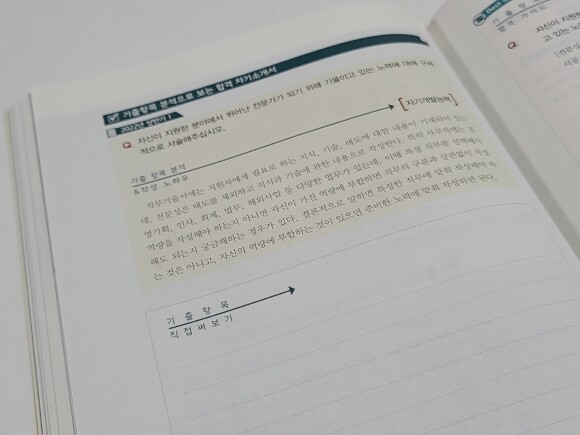 기출항목 분석으로 보는 합격 자기소개서
2022년 상반기 1
Q. 자신이 지원한 분야에서 뛰어난 전문가가 되기 위해 기울이고 있는 노력에 대해 구체
적으로 서술해주십시오.
[자기개발능력]
기출 항목 분석
&작성 노하우
직무기술서에는 지원자에게 필요로 하는 지식, 기술, 태도에 대한 내용이 기재되어 있는
데, 전문성은 태도를 제외하고 지식과 기술에 관한 내용으로 작성한다. 특히 사무직에는 경
영기획, 인사, 회계, 법무, 해외사업 등 다양한 업무가 있는데, 이때 특정 직무를 선택해서
역량을 작성해야 하는지 아니면 자신이 가진 역량에 부합하면 직무의 구분과 상관없이 작성
해도 되는지 궁금해하는 경우가 있다. 결론적으로 말하면 특정한 직무에 맞춰 작성해야 하
는 것은 아니고, 자신의 역량에 부합하는 것이 있으면 준비한 노력에 맞춰 작성하면 된다.
기 출 항 목
직접써보기
Best
기 출 항
합격 가이드
Q. 자신이 지원한
고 있는 노